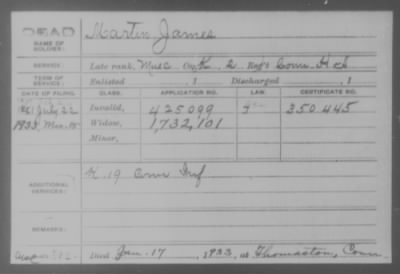 DEAD
NAME OF SOLDIER:
Martin James
SERVICE:
Late rank, Musc Co. K, 2 Reg't Conn. H. Art
TERM OF SERVICE:
Enlisted , 1 Discharged , 1
DATE OF FILING. CLASS. APPLICATION NO. LAW. CERTIFICATE NO.
1881 July 22 Invalid, 425099 350445
1933, Mar. Widow, 1,732,101
Minor,
ADDITIONAL SERVICES:
K. 19 Conn Inf
REMARKS:
Died Jan. 17, 1933, at Thomaston, Conn